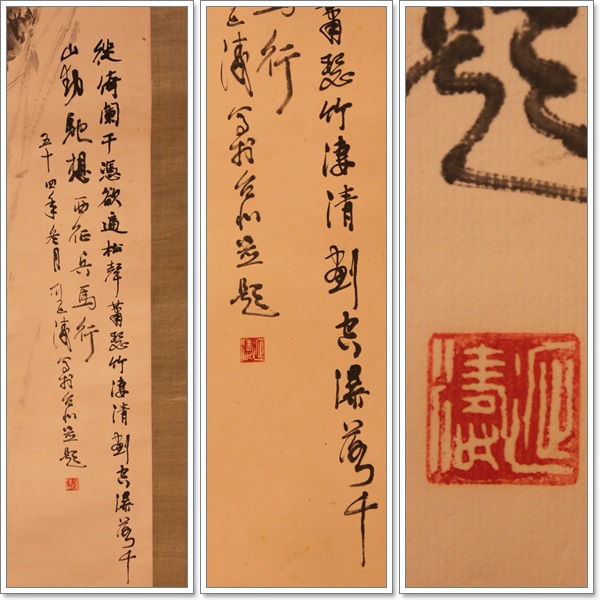 徙倚闌干憑欲遍松聲蕭瑟竹淒清劃空瀑落千
山動馳想西征兵馬行
五十四年冬月刘延濤寫於台北並題
蕭瑟竹淒清劃空瀑落千
馬行
延濤寫於台北並題
延濤
題
延濤